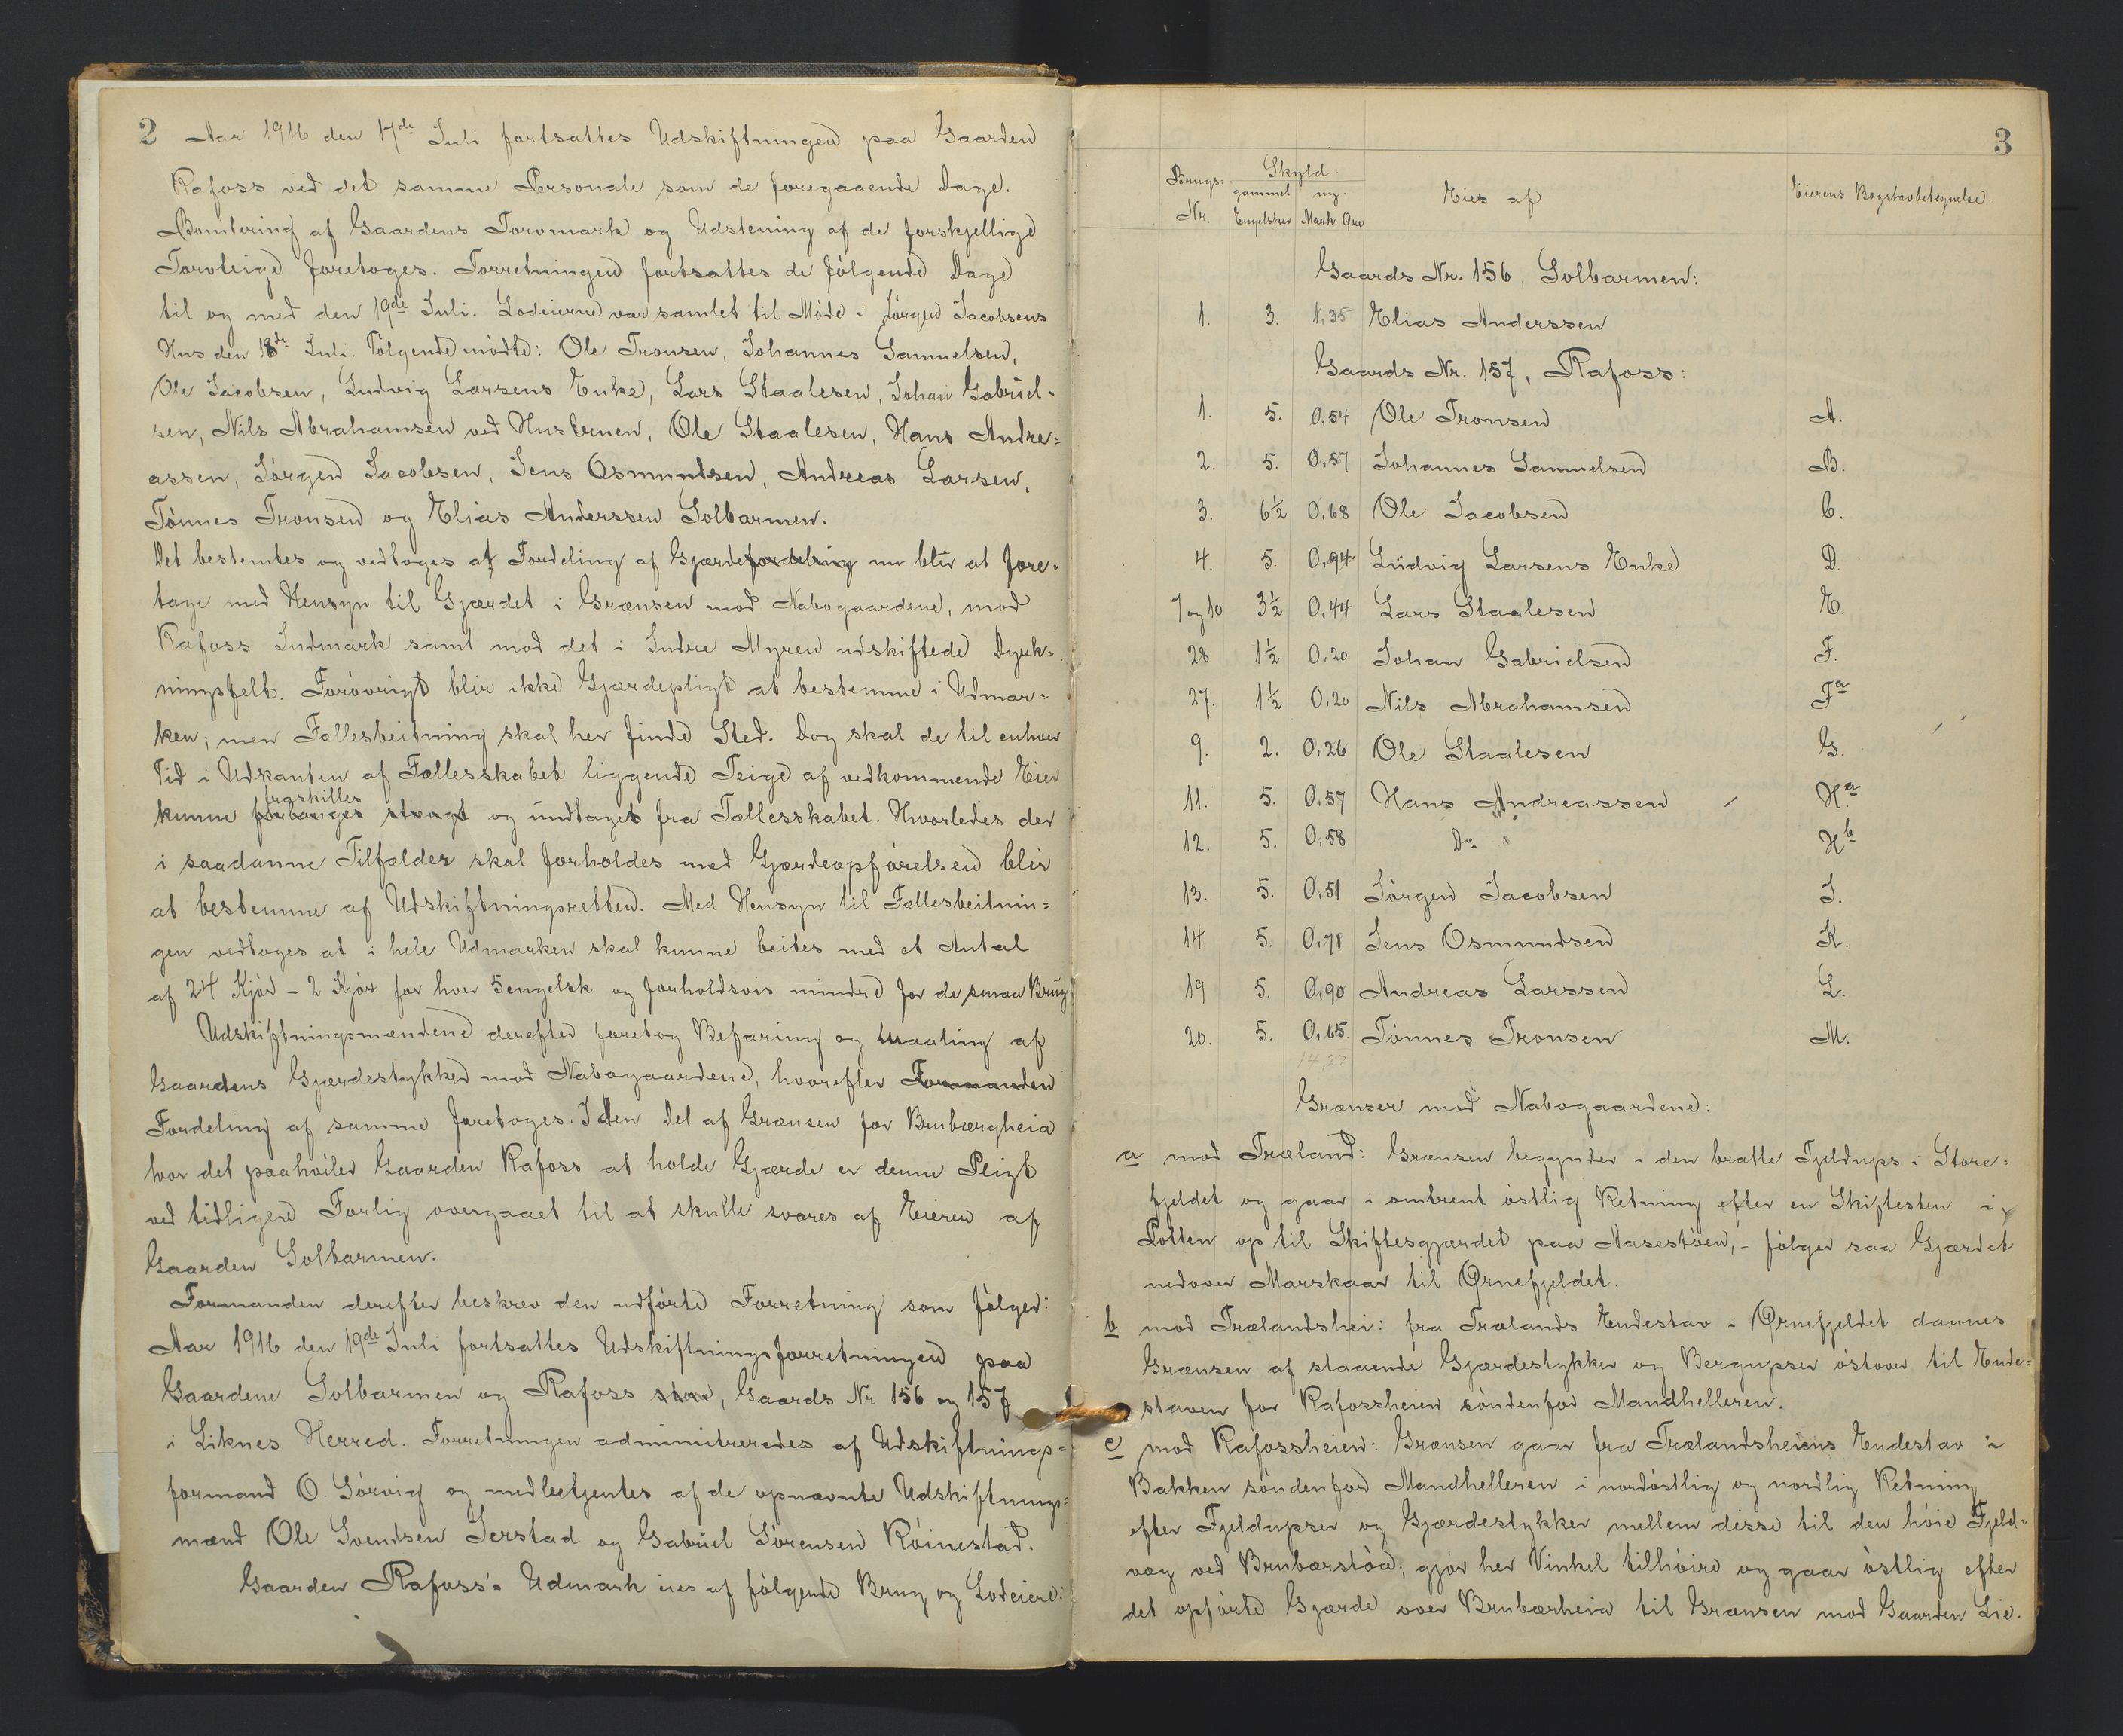 2 Aar 1916 den 17de Juli fortsattes Udskiftningen paa Gaarden
Rafoss ved det samme Personale som de foregaaende Dage.
Bonitering af Gaardens Torvmark og Udstening af de forskjellige
Torvteige foretoges. Forretningen fortsattes de følgende Dage
til og med den 19de Juli. Lodeierne var samlet til Møde i Jørgen Jacobsens
Hus den 18de Juli. Følgende mødte: Ole Tronsen, Johannes Samuelsen,
Ole Jacobsen, Ludvig Larsens Enke, Lars Staalesen, Johan Gabriel-
sen, Nils Abrahamsen ved Hustruen, Ole Staalesen, Hans Andre=
assen, Jørgen Jacobsen, Jens Osmundsen, Andreas Larsen,
Tønnes Tronsen og Elias Anderssen Solbarmen.
Det bestemtes og vedtoges at Fordeling af Gjærdefordeling nu blir at fore-
tage med Hensyn til Gjærdet i Grænsen mod Nabogaardene, mod
Rafoss Indmark samt mod det i Indre Myren udskiftede Dyrk=
ningsfelt. Forøvrigt blir ikke Gjærdepligt at bestemme i Udmar=
ken; men Fællesbeitning skal her finde Sted. Dog skal de til enhver
Tid i Udkanten af Fællesskabet liggende Teige af vedkommende Eier
fraskilles
kunne forlanges stengt og undtaget fra Fællesskabet. Hvorledes der
i saadanne Tilfælder skal forholdes med Gjærdeopførelsen blir
at bestemme af Udskiftningsretten. Med Hensyn til Fællesbeitnin=
gen vedtoges at i hele Udmarken skal kunne beites med et Antal
af 24 Kjør - 2 Kjør for hver 5 engelsk og forholdsvis mindre for de smaa Brug.
Udskiftningsmændene derefter foretog Befaring og Maaling af
Gaardens Gjærdestykker mod Nabogaardene, hvorefter Formanden
Fordeling af samme foretoges. I den Del af Grænsen for Brubærgheia
hvor det paahviler Gaarden Rafoss at holde Gjærde er denne Pligt
ved tidligere Forlig overgaaet til at skulle svares af Eieren af
Gaarden Solbarmen.
Formanden derefter beskrev den udførte Forretning som følger:
Aar 1916 den 19de Juli fortsattes Udskiftningsforretningen paa
Gaardene Solbarmen og Rafoss store, Gaards Nr 156 og 157
i Liknes Herred. Forretningen administreredes af Udskiftnings=
formand O. Sørvig og medbetjentes af de opnævnte Udskiftnings=
mænd Ole Svendsen Jerstad og Gabriel Sørensen Röinestad.
Gaarden Rafoss's Udmark eies af følgende Brug og Lodeiere:
3
Brugs- Nr. Skyld. gammel Engelsker ny. Mark Øre Eies af Eierens Bogstavbetegnelse.
Gaards Nr. 156, Solbarmen:
1. 3. 1,35 Elias Anderssen
Gaards Nr. 157, Rafoss:
1. 5. 0,54 Ole Tronsen A.
2. 5. 0,57 Johannes Samuelsen B.
3. 6½ 0,68 Ole Jacobsen C.
4. 5. 0,94 Ludvig Larsens Enke D.
7 og 10 3½ 0,44 Lars Staalesen E.
28 1½ 0,20 Johan Gabrielsen F.
27. 1½ 0,20 Nils Abrahamsen Fa
9. 2. 0,26 Ole Staalesen G.
11. 5. 0,57 Hans Andreassen Ha
12. 5. 0,58 Do Hb
13. 5. 0,51 Jørgen Jacobsen J.
14. 5. 0,71 Jens Osmundsen K.
19 5. 0,90 Andreas Larssen L.
20. 5. 0,65 Tønnes Tronsen M.
Grænser mod Nabogaardene:
a mod Træland: Grænsen begynder i den bratte Fjeldups i Store=
fjeldet og gaar i omtrent østlig Retning efter en Skiftesten i
Potten op til Skiftesgjærdet paa Aasestøen, - følger saa Gjærdet
nedover Marskaar til Ørnefjeldet.
b mod Trælandshei: fra Trælands Endestav i Ørnefjeldet dannes
Grænsen af staaende Gjærdestykker og Bergupser østover til Ende=
staven for Rafossheien søndenfor Mandhelleren.
c mod Rafossheien: Grænsen gaar fra Trælandsheiens Endestav i
Bakken søndenfor Mandhelleren i nordøstlig og nordlig Retning
efter Fjeldupser og Gjærdestykker mellem disse til den høie Fjeld=
væg ved Brubærstøa; gjør her Vinkel tilhøire og gaar østlig efter
det opførte Gjærde over Brubærheia til Grænsen mod Gaarden Lie.